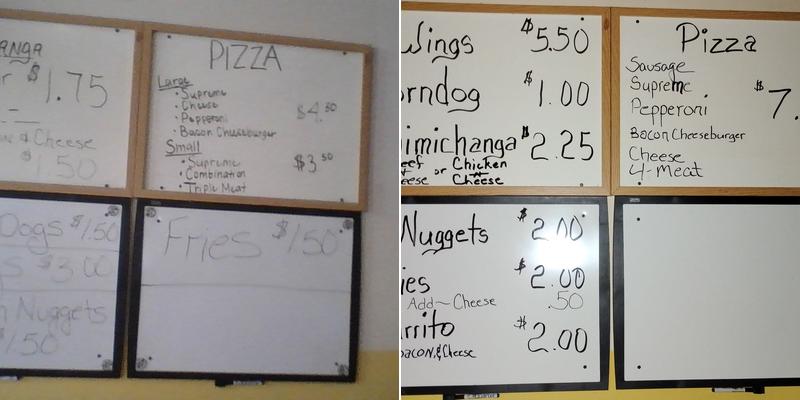 $1.75
& Cheese
$1.50
PIZZA
Large
• Supreme
• Cheese
• Pepperoni
• Bacon Cheeseburger
$4.50
Small
• Supreme
• Combination
• Triple Meat
$3.50
Dogs $1.50
$3.00
Nuggets
$1.50
Fries $1.50
Wings $5.50
orndog $1.00
imichanga $2.25
eef or Chicken
eese n Cheese
Pizza
Sausage
Supreme
Pepperoni
Bacon Cheeseburger
Cheese
4-Meat
$7.
Nuggets $2.00
ies $2.00
Add~Cheese .50
rrito $2.00
Bacon, & Cheese